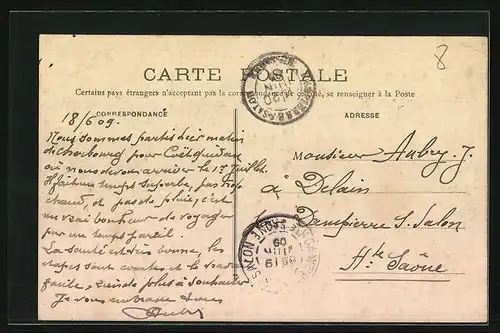 8
CARTE POSTALE
Certains pays étrangers n'acceptant pas la correspondance de ce côté, se renseigner à la Poste
CORRESPONDANCE
ADRESSE
18/6 09.
Nous sommes partis hier matin
de Cherbourg pour Coëtquidan
où nous devons arriver le 1er Juillet.
Il fait un temps superbe, pas trop
chaud, et pas de pluie; c'est
un vrai bonheur de voyager
par un temps pareil.
La santé est très bonne, les
étapes sont courtes et le
facile, rien de plus à souhaiter
Je vous embrasse tous
Aubry
Monsieur Aubry. J.
à Delain
Dampierre S. Salon
Hte Saône